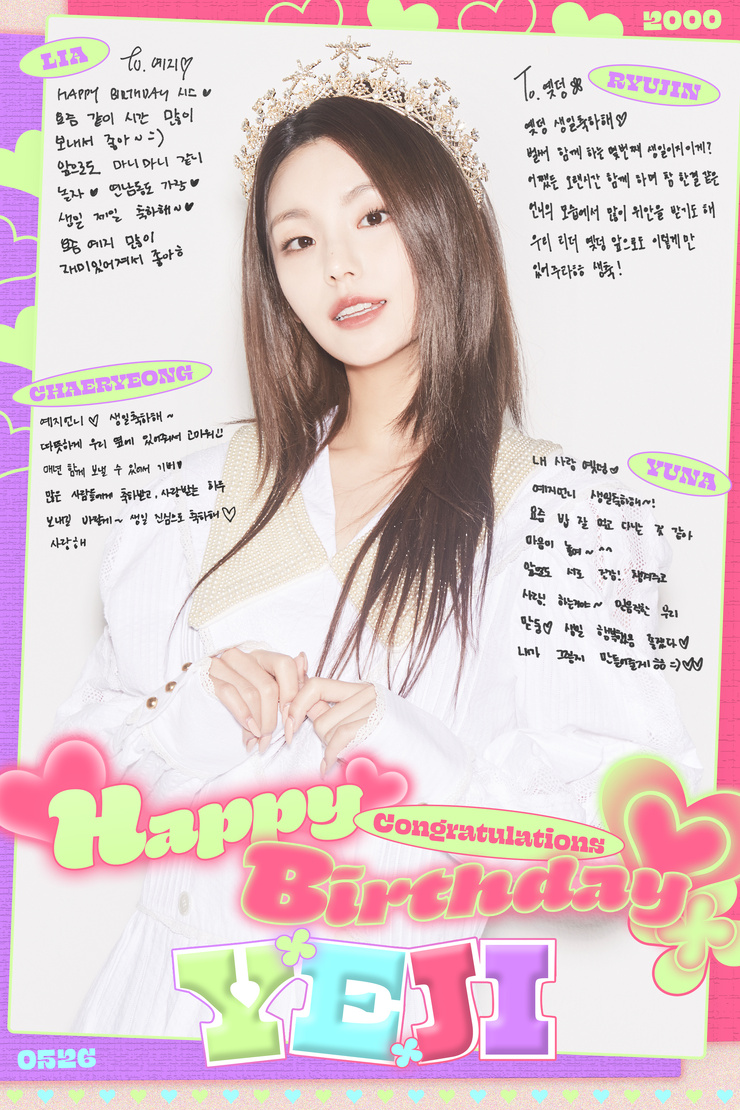 2000
LIA
To. 예지♡
HAPPY BIRTHDAY 시드♥
요즘 같이 시간 많이
보내서 좋아~ =)
앞으로도 마니마니 같이
놀자♥ 연남동도 가락♥
생일 제일 축하해~♥
예지 많이
재미있어져서 좋아ㅎ
To. 옛덩
RYUJIN
옛덩 생일축하해♡
벌써 함께 하는 몇번째 생일이지이게?
어쨌든 오랜시간 함께 하며 참 한결 같은
언니의 모습에서 많이 위안을 받기도 해
우리 리더 옛덩 앞으로도 이렇게만
있어주라하하 생축!
CHAERYEONG
예지언니♡ 생일축하해~
따뜻하게 우리 옆에 있어줘서 고마워!!
매년 함께 보낼 수 있어서 기뻐
많은 사람들에게 축하받고, 사랑받는 하루
보내길 바랄게~ 생일 진심으로 축하해♡
사랑해
내 사랑 옛덩♡
YUNA
예지언니 생일축하해~!
요즘 밥 잘 먹고 다니는 것 같아
마음이 놓여~ ^^
앞으로도 서로 건강! 챙겨주고
사랑! 하는거야~ 믿음직한 우리
만능♡ 생일 행복했음 좋겠다♡
내가 그렇게 만들어줄게 =)♡♡
Happy
Congratulations
Birthday
YEJI
0526